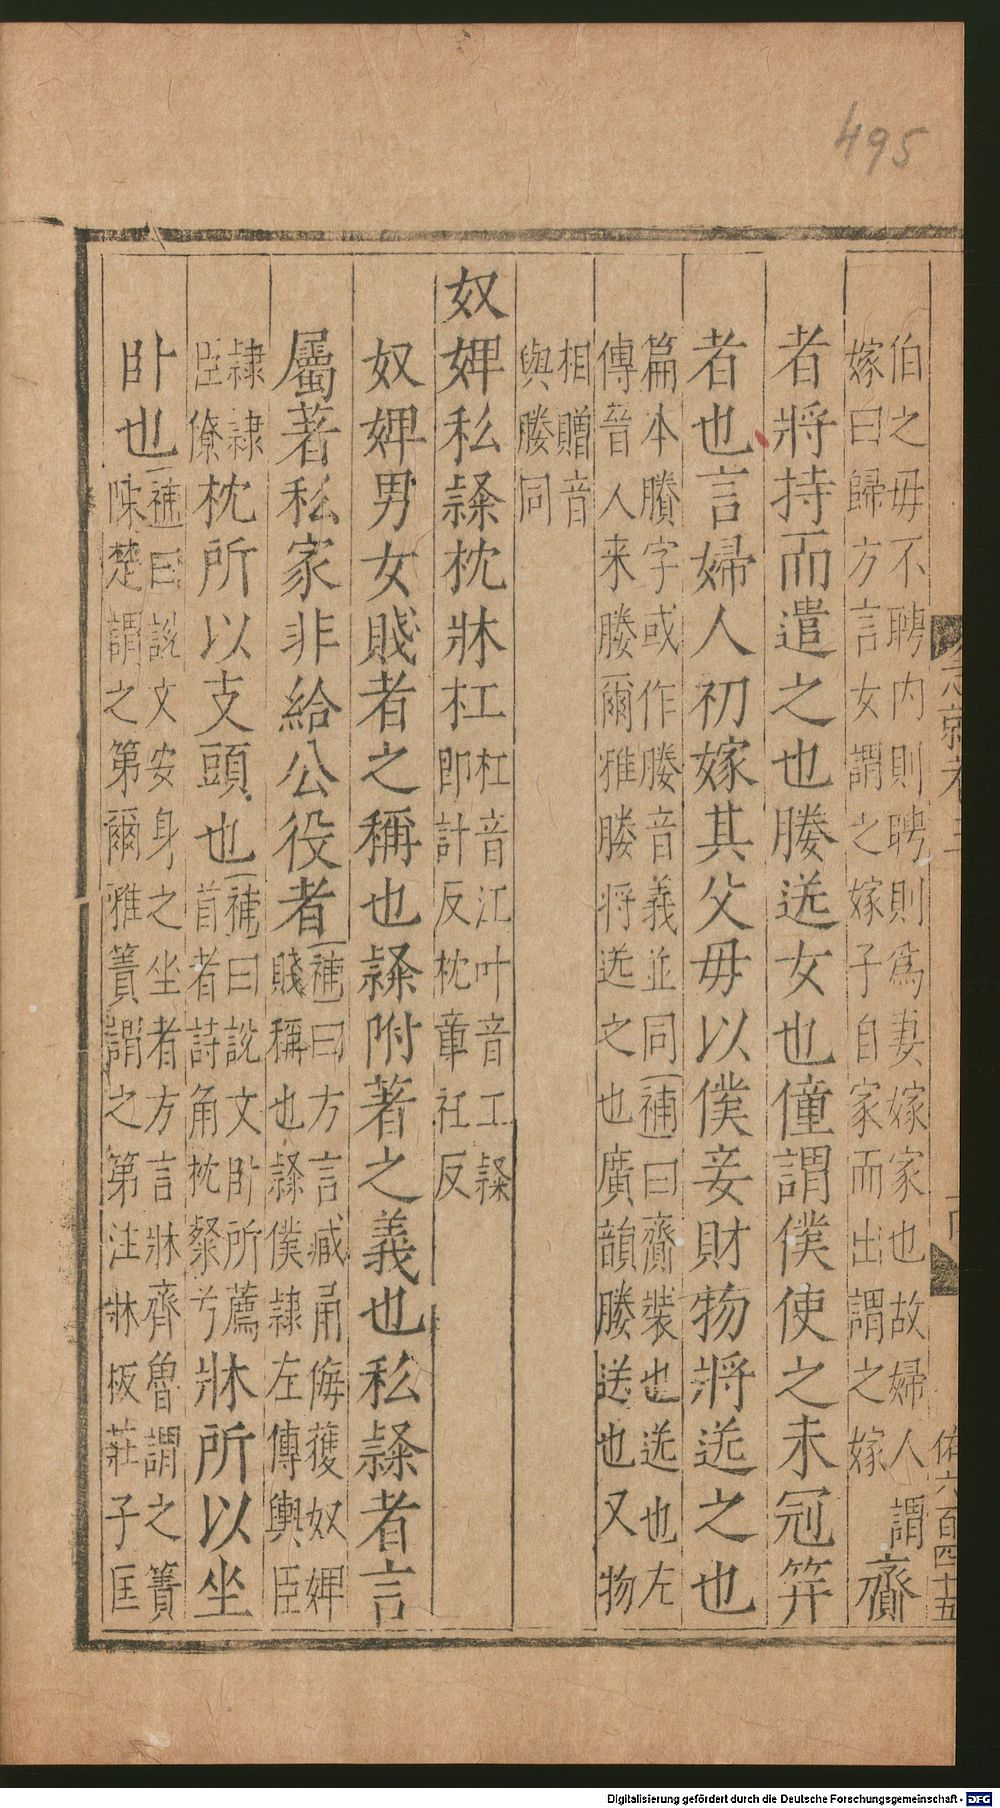 495
伯之毋不聘内則聘則爲妻嫁家也故婦人謂
嫁曰歸方言女謂之嫁子自家而出謂之嫁
齎
者將持而遣之也媵送女也僮謂僕使之未冠笄
者也言婦人初嫁其父毋以僕妾財物將送之也
篇本賸字或作媵音義並同補曰齎裝也送也左
傳晉人来媵爾雅媵将送之也廣韻媵送也又物
相贈音
與媵同
奴婢私隷枕牀杠
杠音江叶音工隷
郎計反枕章社反
奴婢男女賎者之稱也隷附著之義也私隷者言
屬著私家非給公役者
補曰方言臧甬侮獲奴婢
賤稱也隷僕隷左傳輿臣
隷隷
臣僚
枕所以支頭也
補曰説文卧所薦
首者詩角枕粲兮
牀所以坐
卧也
補曰説文安身之坐者方言牀齊魯謂之簀
陳楚謂之第爾雅簀謂之第注牀板莊子匡
急就卷三
佑六百四十五
Digitalisierung gefördert durch die Deutsche Forschungsgemeinschaft - DFG